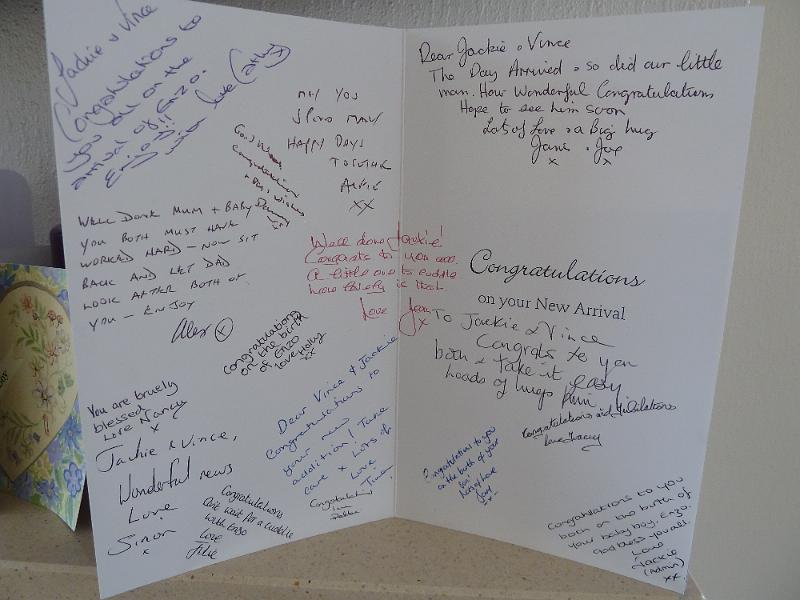 Jackie & Vince
Congratulations to
you all on the
arrival of Enzo.
Enjoy!!
with love Cathy
May you
Happy Days
Together
Alfie
xx
Good Week
Congratulations
Well Done Mum + Baby
You both must have
worked hard - now sit
back and let Dad
look after both of
you - Enjoy
Alex x
Well done Jackie!
Congrats to you all.
A little one to cuddle
how lovely is that.
Love Jean
x
Congratulations
on the birth
of Enzo
love Holly
xx
You are truely
blessed
Love Nancy
x
Jackie & Vince,
Wonderful news
Love
Simon
x
Dear Vince & Jackie
Congratulations to
your new
addition! Take
care x Lots of
Love
Congratulations
Can't wait for a cuddle
with Enzo
Love
Julie
Congratulations
Dear Jackie & Vince
The Day Arrived & so did our little
man. How Wonderful Congratulations
Hope to see him soon
Lots of Love & a Big hug
Jane & Joe
x x
Congratulations
on your New Arrival
To Jackie & Vince
Congrats to you
both & take it easy
loads of hugs
Congratulations and Jubilations
love Tracy
Congratulations to you
on the birth of your
son!
love
Congratulations to you
both on the birth of
your baby boy, Enzo.
God bless you all.
Love
Jackie
(Admin)
xx